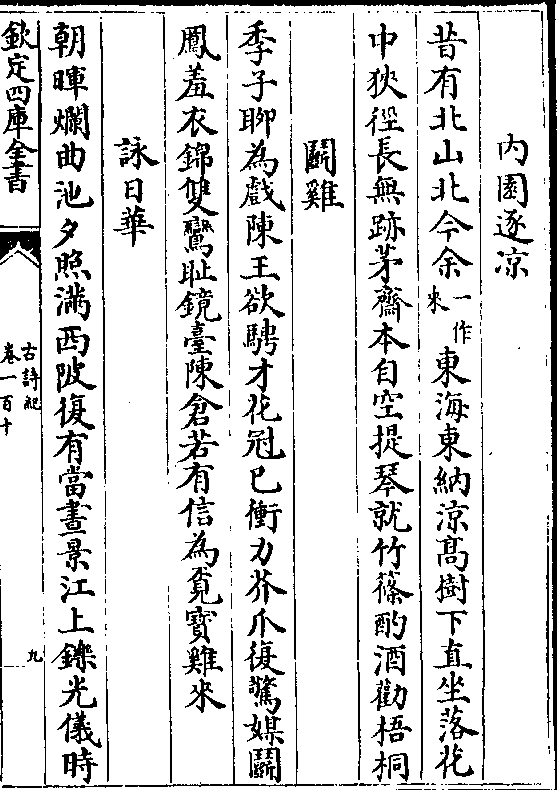 内園逐凉
昔有北山北今余一作來東海東納凉高樹下直坐落花
中狹徑長無跡茅齋本自空提琴就竹篠酌酒勸梧桐
鬭雞
季子聊為戲陳王欲騁才花冠已衝力芥爪復驚媒鬭
鳳羞衣錦雙鸞恥鏡臺陳倉若有信為覓寶雞來
詠日華
朝暉爛曲池夕照滿西陂復有當晝景江上鑠光儀時
欽定四庫全書
古詩紀
卷一百十
九